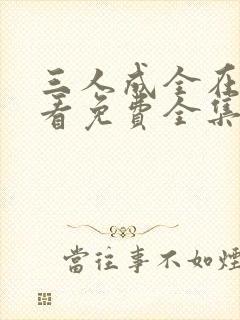 三人成全在
看免費全集
當往事不如煙